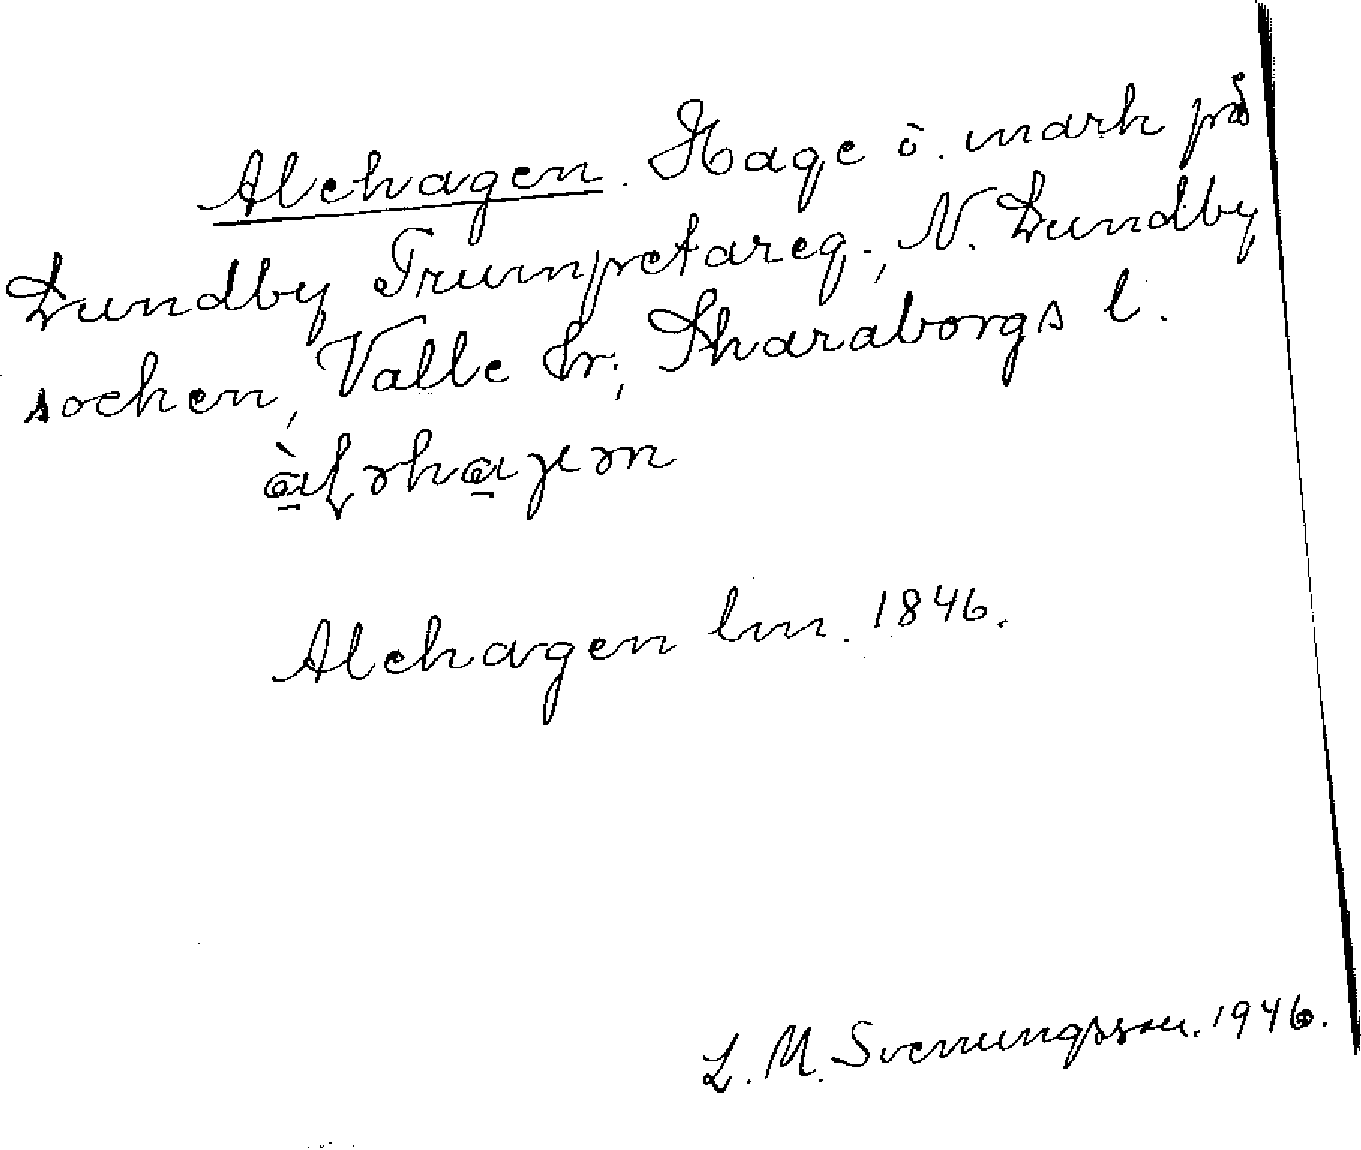 Alehagen. Hage o. mark på
Lundby Trumpetareg., N. Lundby
socken, Valle hr; Skaraborgs l.
Alehagen lm. 1846.
L. M. Svenungsson. 1946.